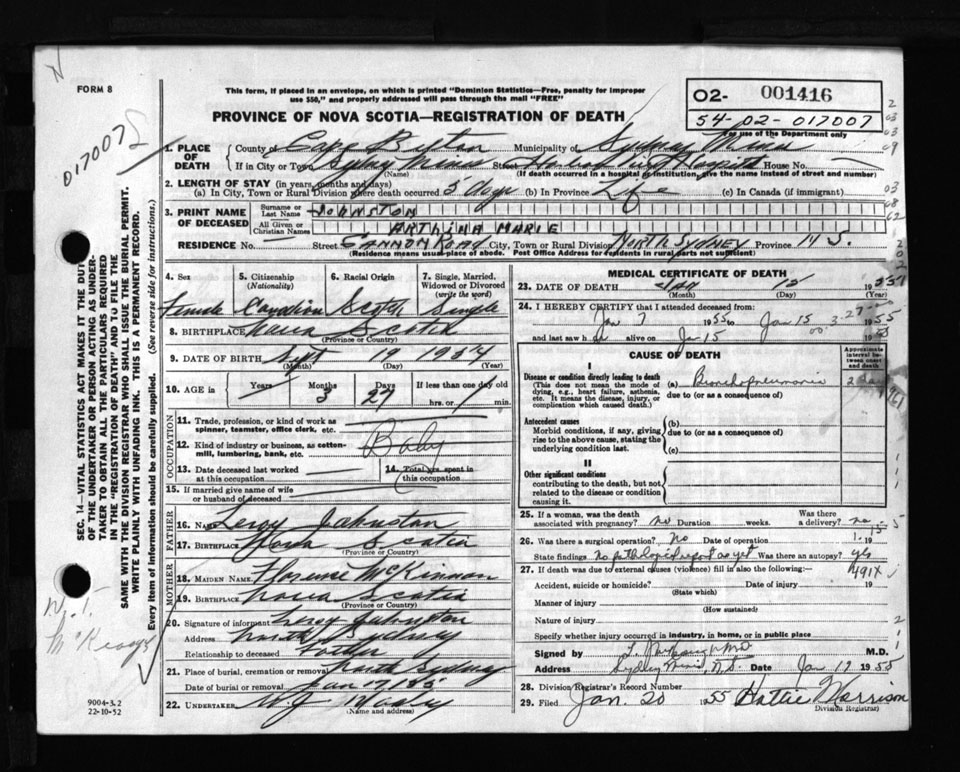 FORM 8
This form, if placed in an envelope, on which is printed "Dominion Statistics—Free, penalty for improper
use $50," and properly addressed will pass through the mail "FREE"
PROVINCE OF NOVA SCOTIA—REGISTRATION OF DEATH
02- 001416
54-02-017007
For use of the Department only
017007
1. PLACE OF DEATH
County of Cape Breton Municipality of Sydney Mines
If in City or Town Sydney Mines Street Hospital House No.
(Name) (If death occurred in a hospital or institution, give the name instead of street and number)
2. LENGTH OF STAY (in years, months and days)
(a) In City, Town or Rural Division where death occurred 5 days (b) In Province Life (c) In Canada (if immigrant)
3. PRINT NAME OF DECEASED
Surname or Last Name JOHNSTON
All Given or Christian Names ARTHINA MARIE
RESIDENCE No. Street CANNON ROAD City, Town or Rural Division NORTH SYDNEY Province N S.
(Residence means usual place of abode. Post Office Address for residents in rural parts not sufficient)
4. Sex Female
5. Citizenship (Nationality) Canadian
6. Racial Origin Scotch
7. Single, Married, Widowed or Divorced (write the word) Single
8. BIRTHPLACE Nova Scotia
(Province or Country)
9. DATE OF BIRTH Sept 19 1954
(Month) (Day) (Year)
10. AGE in Years Months 3 Days 27 If less than one day old
hrs. or min.
OCCUPATION
11. Trade, profession, or kind of work as
spinner, teamster, office clerk, etc.
12. Kind of industry or business, as cotton-
mill, lumbering, bank, etc. Baby
13. Date deceased last worked
at this occupation
14. Total yrs. spent in
this occupation
15. If married give name of wife
or husband of deceased
FATHER
16. NAME Leroy Johnston
17. BIRTHPLACE Nova Scotia
(Province or Country)
MOTHER
18. MAIDEN NAME Florence McKinnon
19. BIRTHPLACE Nova Scotia
(Province or Country)
20. Signature of informant Leroy Johnston
Address North Sydney
Relationship to deceased Father
21. Place of burial, cremation or removal North Sydney
Date of burial or removal Jan 17, 155
22. UNDERTAKER
(Name and address)
MEDICAL CERTIFICATE OF DEATH
23. DATE OF DEATH Jan 15 1955
(Month) (Day) (Year)
24. I HEREBY CERTIFY that I attended deceased from:
Jan 7 1955 to Jan 15 1955
and last saw h alive on Jan 15 1955
CAUSE OF DEATH
Approximate interval between onset and death
I
Disease or condition directly leading to death
(This does not mean the mode of
dying, e.g., heart failure, asthenia,
etc. It means the disease, injury, or
complication which caused death.)
(a) Bronchopneumonia 2 days
due to (or as a consequence of)
Antecedent causes
Morbid conditions, if any, giving
rise to the above cause, stating the
underlying condition last.
(b)
due to (or as a consequence of)
(c)
II
Other significant conditions
contributing to the death, but not
related to the disease or condition
causing it.
25. If a woman, was the death
associated with pregnancy? no Duration weeks. Was there
a delivery? no
26. Was there a surgical operation? no Date of operation 19
State findings no pathological report as yet Was there an autopsy? yes
27. If death was due to external causes (violence) fill in also the following:—
491X
Accident, suicide or homicide? Date of injury 19
(State which)
Manner of injury
(How sustained)
Nature of injury
Specify whether injury occurred in industry, in home, or in public place
Signed by M.D.
Address Sydney Mines, N.S. Date Jan 17 1955
28. Division Registrar's Record Number
29. Filed Jan. 20 1955 Hattie Morrison
Division Registrar
SEC. 14—VITAL STATISTICS ACT MAKES IT THE DUTY
OF THE UNDERTAKER OR PERSON ACTING AS UNDER-
TAKER TO OBTAIN ALL THE PARTICULARS REQUIRED
IN THE "REGISTRATION OF DEATH" AND TO FILE THE
SAME WITH THE DIVISION REGISTRAR WHO SHALL ISSUE THE BURIAL PERMIT.
WRITE PLAINLY WITH UNFADING INK. THIS IS A PERMANENT RECORD.
Every item of information should be carefully supplied. (See reverse side for instructions.)
9004-3.2
22-10-52